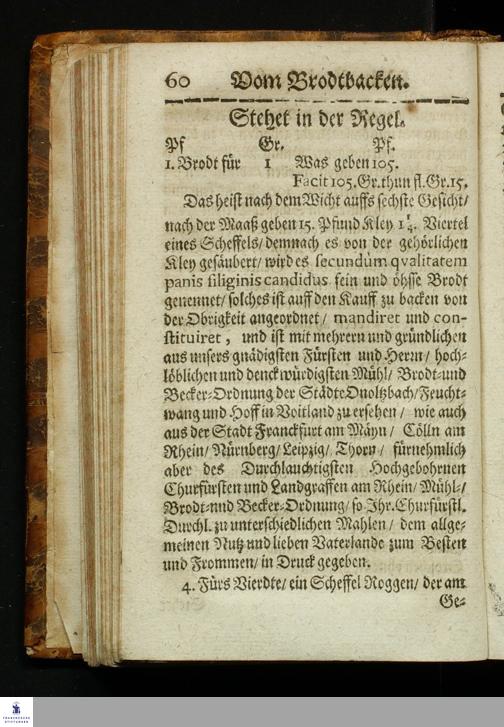 60 Vom Brodtbacken.
Stehet in der Regel.
Pf Gr. Pf.
1. Brodt für 1 Was geben 105.
Facit 105. Gr. thun fl. Gr. 15.
Das heist nach dem Wicht auffs sechste Gesicht/
nach der Maaß geben 15. Pfund Kley 1 1/4. Viertel
eines Scheffels/ demnach es von der gehörlichen
Kley gesäubert/ wird es secundùm qvalitatem
panis siliginis candidus fein und öhsse Brodt
genennet/ solches ist auff den Kauff zu backen von
der Obrigkeit angeordnet/ mandiret und con-
stituiret, und ist mit mehrern und gründlichen
aus unsers gnädigsten Fürsten und Herrn/ hoch-
löblichen und denckwürdigsten Mühl/ Brodt-und
Becker-Ordnung der Städte Onoltzbach/ Feucht-
wang und Hoff in Voitland zu ersehen/ wie auch
aus der Stadt Franckfurt am Mäyn/ Cölln am
Rhein/ Nürnberg/ Leipzig/ Thorn/ fürnehmlich
aber des Durchlauchtigsten Hochgebohrnen
Churfürsten und Landgraffen am Rhein/ Mühl-/
Brodt-und Becker-Ordnung/ so Ihr. Churfürstl.
Durchl. zu unterschiedlichen Mahlen/ dem allge-
meinen Nutz und lieben Vaterlande zum Besten
und Frommen/ in Druck gegeben.
4. Fürs Vierdte/ ein Scheffel Roggen/ der am
Ge-
FRANCKESCHE
STIFTUNGEN